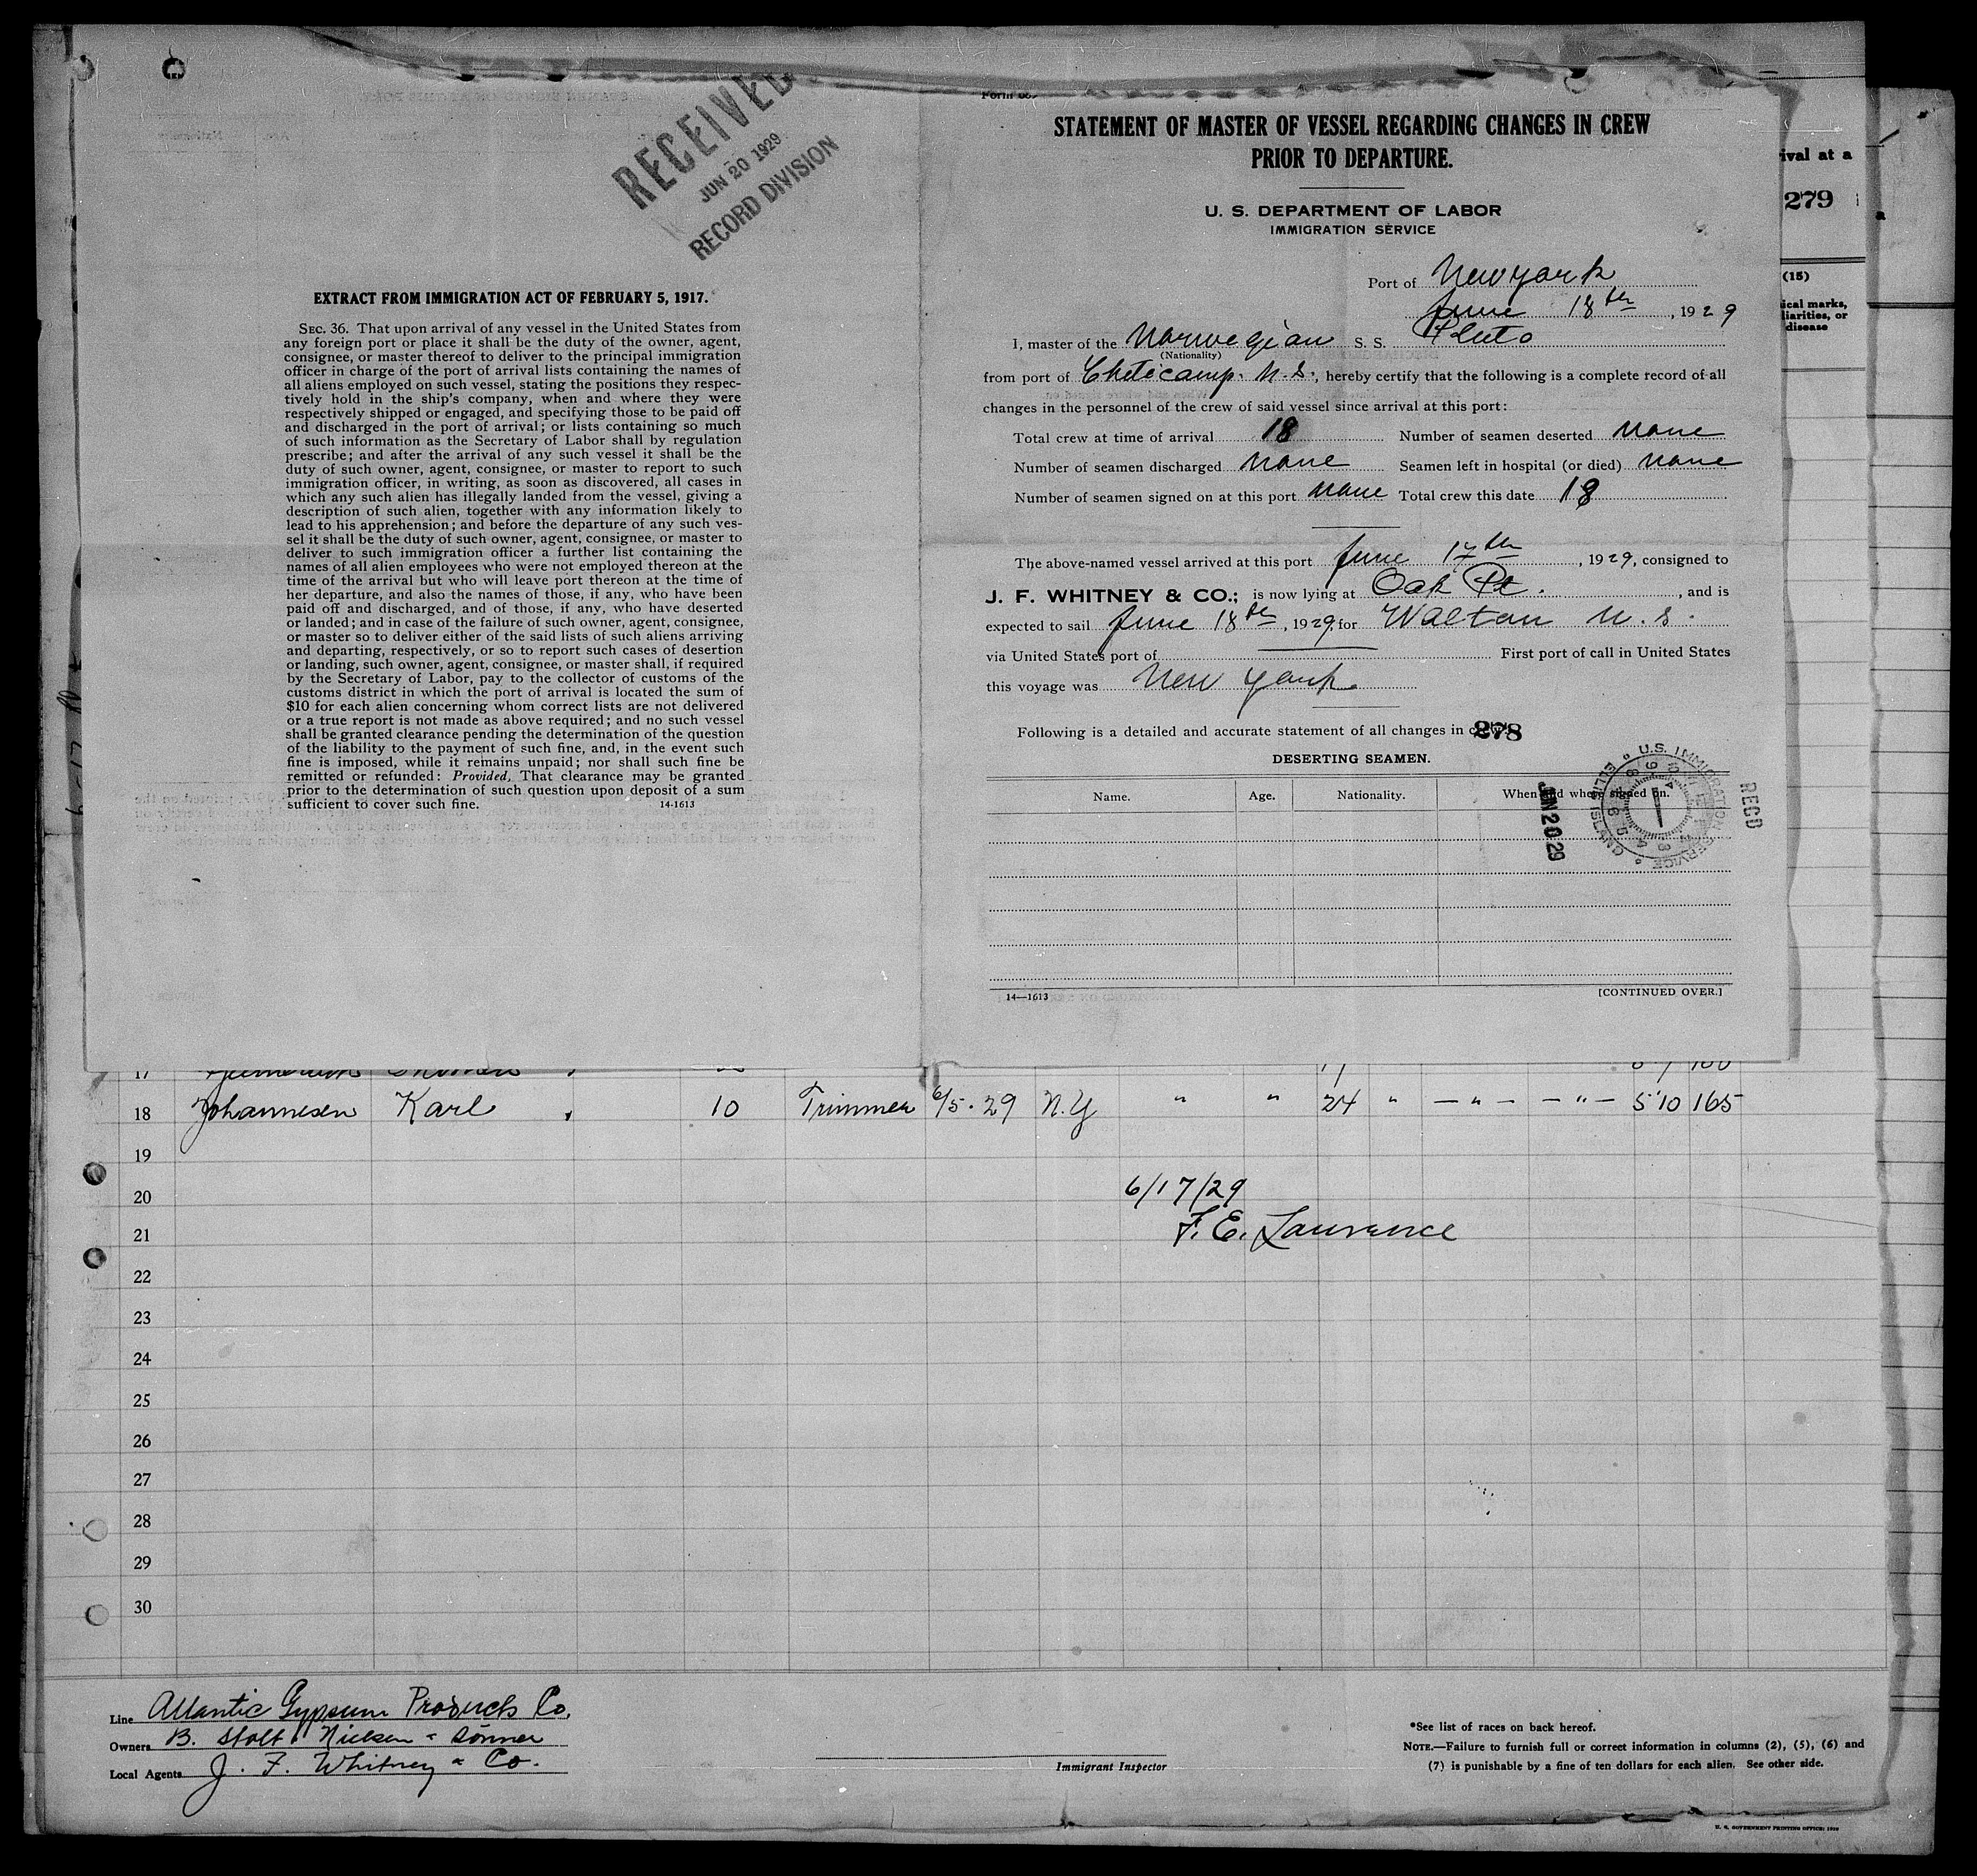 RECEIVED
JUN 20 1929
RECORD DIVISION
EXTRACT FROM IMMIGRATION ACT OF FEBRUARY 5, 1917.
SEC. 36. That upon arrival of any vessel in the United States from
any foreign port or place it shall be the duty of the owner, agent,
consignee, or master thereof to deliver to the principal immigration
officer in charge of the port of arrival lists containing the names of
all aliens employed on such vessel, stating the positions they respec-
tively hold in the ship's company, when and where they were
respectively shipped or engaged, and specifying those to be paid off
and discharged in the port of arrival; or lists containing so much
of such information as the Secretary of Labor shall by regulation
prescribe; and after the arrival of any such vessel it shall be the
duty of such owner, agent, consignee, or master to report to such
immigration officer, in writing, as soon as discovered, all cases in
which any such alien has illegally landed from the vessel, giving a
description of such alien, together with any information likely to
lead to his apprehension; and before the departure of any such ves-
sel it shall be the duty of such owner, agent, consignee, or master to
deliver to such immigration officer a further list containing the
names of all alien employees who were not employed thereon at the
time of the arrival but who will leave port thereon at the time of
her departure, and also the names of those, if any, who have been
paid off and discharged, and of those, if any, who have deserted
or landed; and in case of the failure of such owner, agent, consignee,
or master so to deliver either of the said lists of such aliens arriving
and departing, respectively, or so to report such cases of desertion
or landing, such owner, agent, consignee, or master shall, if required
by the Secretary of Labor, pay to the collector of customs of the
customs district in which the port of arrival is located the sum of
$10 for each alien concerning whom correct lists are not delivered
or a true report is not made as above required; and no such vessel
shall be granted clearance pending the determination of the question
of the liability to the payment of such fine, and, in the event such
fine is imposed, while it remains unpaid; nor shall such fine be
remitted or refunded: Provided, That clearance may be granted
prior to the determination of such question upon deposit of a sum
sufficient to cover such fine. 14-1613
Form
STATEMENT OF MASTER OF VESSEL REGARDING CHANGES IN CREW
PRIOR TO DEPARTURE.
U. S. DEPARTMENT OF LABOR
IMMIGRATION SERVICE
Port of New York
June 18th, 1929
I, master of the Norwegian S. S. Pluto
(Nationality)
from port of Cheticamp. N. S., hereby certify that the following is a complete record of all
changes in the personnel of the crew of said vessel since arrival at this port:
Total crew at time of arrival 18 Number of seamen deserted none
Number of seamen discharged none Seamen left in hospital (or died) none
Number of seamen signed on at this port none Total crew this date 18
The above-named vessel arrived at this port June 17th, 1929, consigned to
J. F. WHITNEY & CO.; is now lying at Oak Pt., and is
expected to sail June 18th, 1929, for Walton N. S.
via United States port of First port of call in United States
this voyage was New York
Following is a detailed and accurate statement of all changes in
278
DESERTING SEAMEN.
Name. Age. Nationality. When and where signed on.
JUN 20 29
U.S. IMMIGRATION SERVICE ELLIS ISLAND
REC'D
14—1613 [CONTINUED OVER.]
ival at a
279
(15)
ical marks,
liarities, or
disease
17
18 Johannesen Karl 10 Trimmer 6/5-29 N.Y " " 24 " — " — — " — 5'10 165
19
6/17/29
20
F. E. Lawrence
21
22
23
24
25
26
27
28
29
30
Line Atlantic Gypsum Products Co.
Owners B. Stolt Nielsen & Sönner
Local Agents J. F. Whitney & Co.
Immigrant Inspector
*See list of races on back hereof.
NOTE.—Failure to furnish full or correct information in columns (2), (5), (6) and
(7) is punishable by a fine of ten dollars for each alien. See other side.
U. S. GOVERNMENT PRINTING OFFICE: